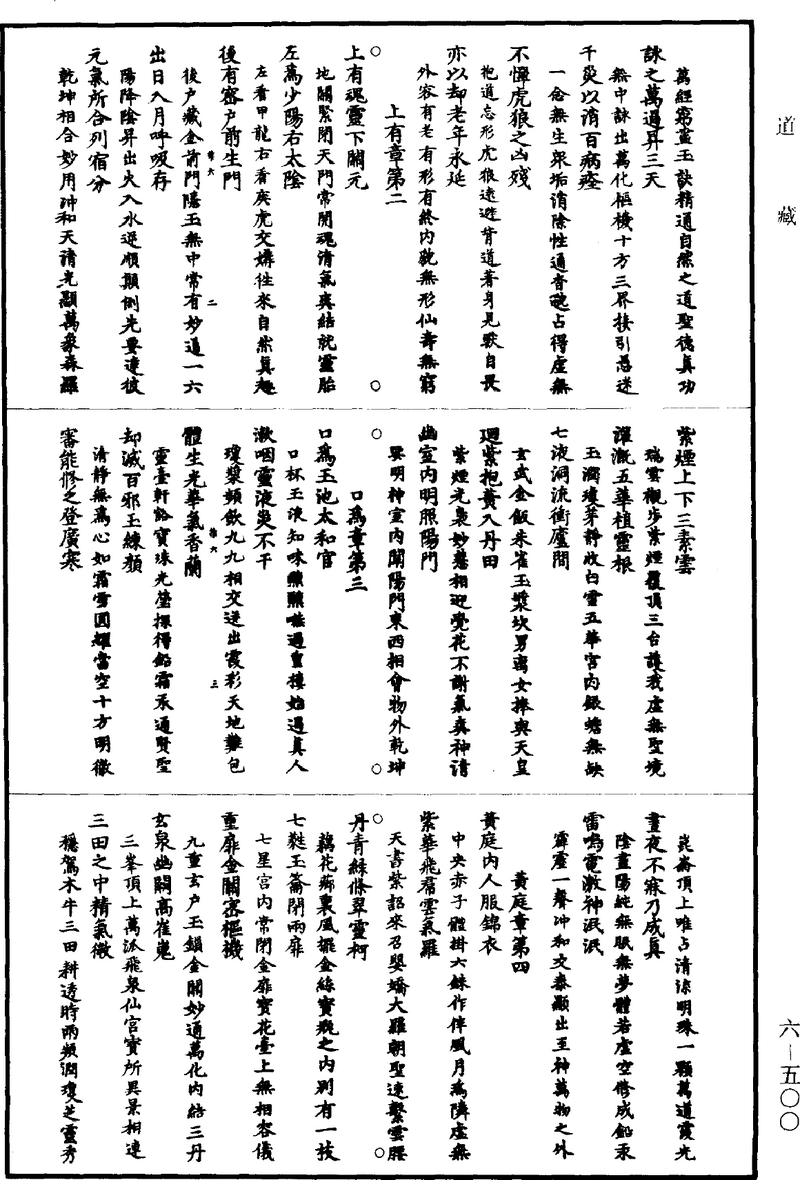 道藏
六－五〇〇
萬經窮盡玉訣精通自然之道聖德真功
詠之萬過昇三天
無中詠出萬化樞機十方三界接引愚迷
千災以消百病痊
一念無生眾垢消除性通杳磈占得虛無
不憚虎狼之凶殘
抱道忘形虎狼遠遊背道著身見獸自畏
亦以却老年永延
外容有老有形有終內貌無形仙壽無窮
上有章第二
上有魂靈下關元
地關緊閉天門常開魂清氣爽結就靈胎
左為少陽右太陰
左看甲龍右看庚虎交媾往來自然真趣
後有密戶前生門
後戶藏金前門隱玉無中常有妙通一六
出日入月呼吸存
陽降陰昇出火入水逆順顛倒先要達彼
元氣所合列宿分
乾坤相合妙用沖和天清光顯萬象森羅
紫煙上下三素雲
瑞雲襯步紫煙覆頂三台護我虛無聖境
灌溉五華植靈根
玉澗瓊芽靜收白雪五華宮內銀蟾無缺
七液洞流衝廬間
玄武金飯朱雀玉漿坎男离女捧與天皇
迴紫抱黃入丹田
紫煙光裏妙慧相迎覺花不謝氣爽神清
幽室內明照陽門
要明神室內開陽門東西相會物外乾坤
口為章第三
口為玉池太和官
口杯玉液知味頻頻嚥過重樓始遇真人
漱咽靈液災不干
瓊漿頻飲九九相交迸出霞彩天地難包
體生光華氣香蘭
靈臺軒豁寶珠光瑩採得鉛霜汞通賢聖
却滅百邪玉練顏
清靜無為心如霜雪圓耀當空十方明徹
審能修之登廣寒
崑崙頂上唯占清涼明珠一顆萬道霞光
晝夜不寐乃成真
陰盡陽純無眠無夢體若虛空修成鉛汞
雷鳴電激神泯泯
霹靂一聲沖和交泰顯出至神萬物之外
黃庭章第四
黃庭內人服錦衣
中央赤子體掛六銖作伴風月為隣虛無
紫華飛裙雲氣羅
天書紫詔來召嬰嬌大羅朝聖速繫雲腰
丹青綠條翠靈柯
藕花鄉裏風擺金絲寶瓶之內別有一枝
七蕤玉籥閉兩扉
七星宮內常閉金扉寶花臺上無相容儀
重扉金關密樞機
九重玄戶玉鎖金關妙通萬化內結三丹
玄泉幽關高崔嵬
三峯頂上萬派飛泉仙宮寶所異景相連
三田之中精氣微
穩駕木牛三田耕透時雨頻潤瓊芝靈秀